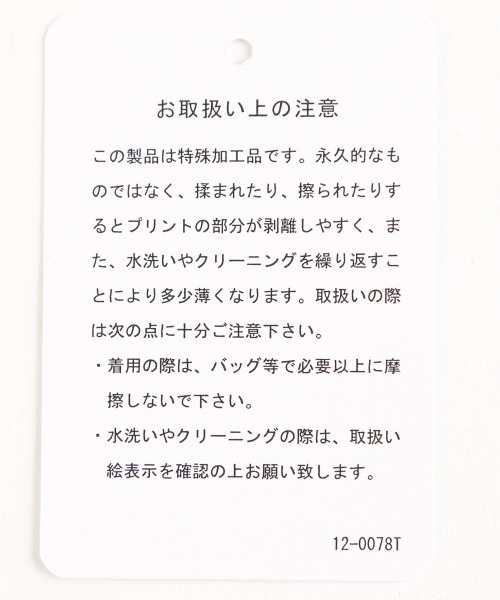 お取扱い上の注意
この製品は特殊加工品です。永久的なも
のではなく、揉まれたり、擦られたりす
るとプリントの部分が剥離しやすく、ま
た、水洗いやクリーニングを繰り返すこ
とにより多少薄くなります。取扱いの際
は次の点に十分ご注意下さい。
・着用の際は、バッグ等で必要以上に摩
擦しないで下さい。
・水洗いやクリーニングの際は、取扱い
絵表示を確認の上お願い致します。
12-0078T